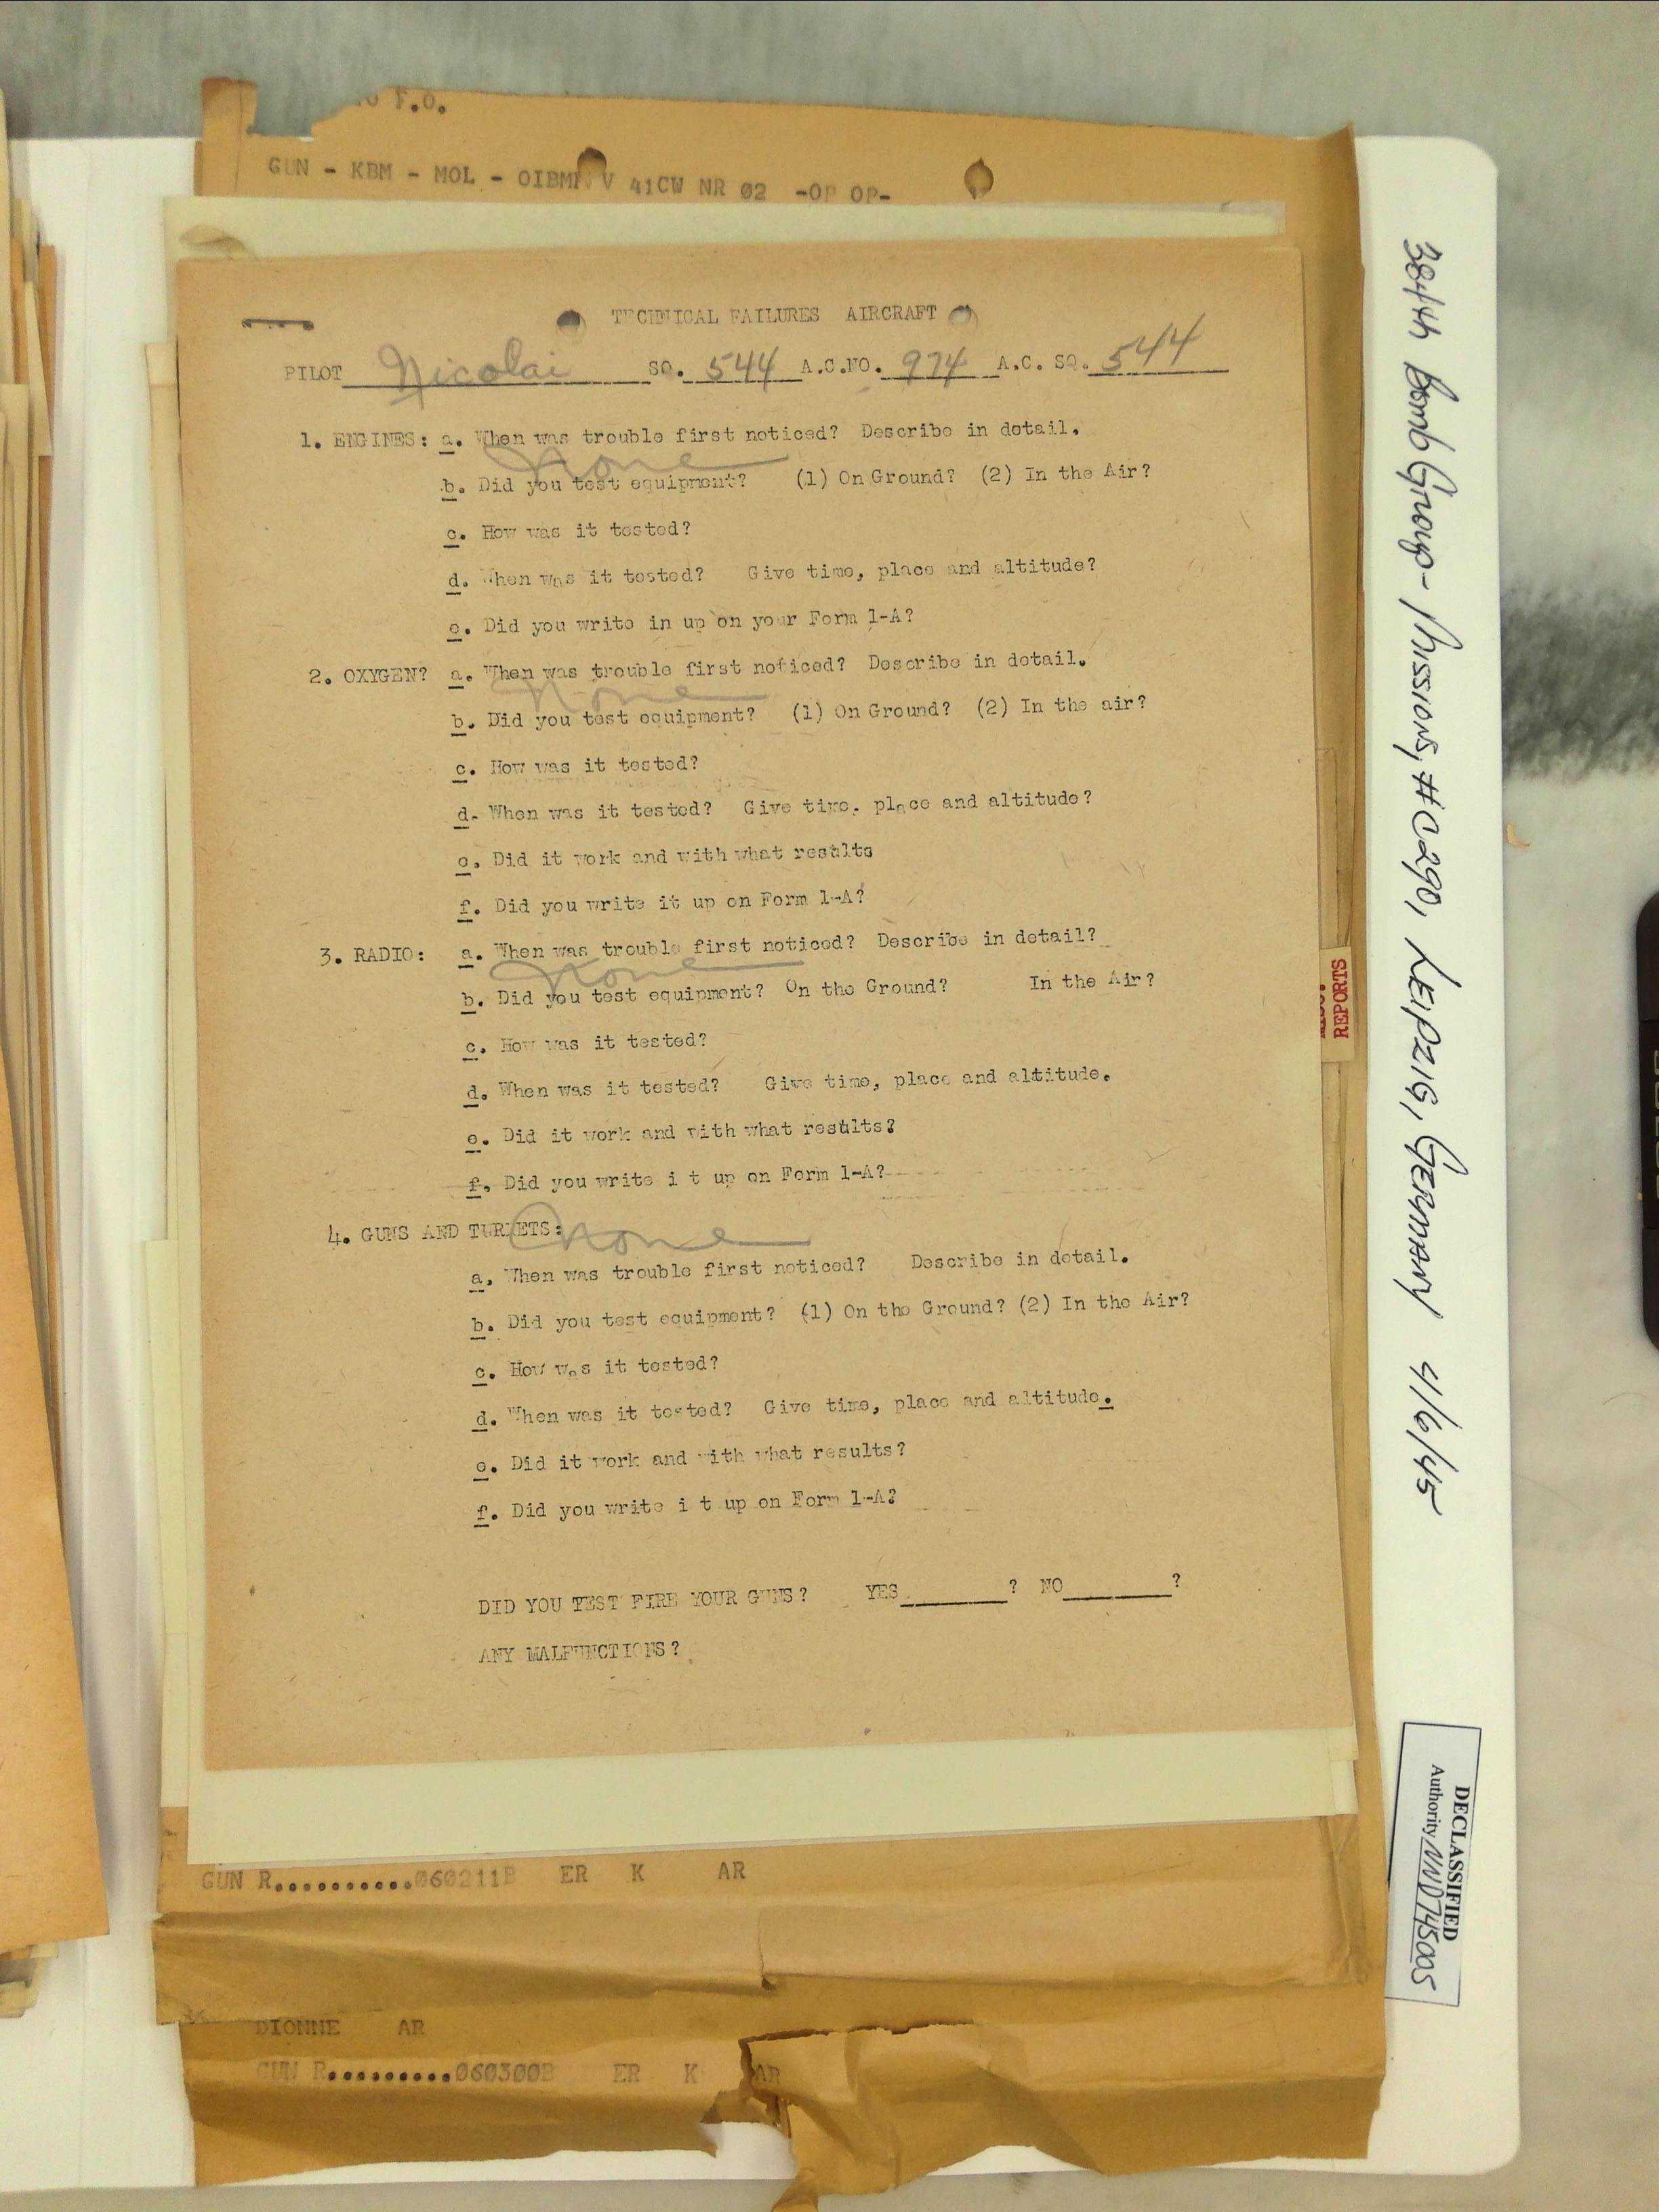 F.O.
GUN - KBM - MOL - OIBMR V 41CW NR 02 -OP OP-
TECHNICAL FAILURES AIRCRAFT
PILOT Nicolai SQ. 544 A.C.NO. 974 A.C. SQ. 544
1. ENGINES: a. When was trouble first noticed? Describe in detail.
None
b. Did you test equipment? (1) On Ground? (2) In the Air?
c. How was it tested?
d. When was it tested? Give time, place and altitude?
e. Did you write in up on your Form 1-A?
2. OXYGEN? a. When was trouble first noticed? Describe in detail.
None
b. Did you test equipment? (1) On Ground? (2) In the air?
c. How was it tested?
d. When was it tested? Give time. place and altitude?
e. Did it work and with what results
f. Did you write it up on Form 1-A?
3. RADIO: a. When was trouble first noticed? Describe in detail?
None
b. Did you test equipment? On the Ground? In the Air?
c. How was it tested?
d. When was it tested? Give time, place and altitude.
e. Did it work and with what results?
f. Did you write i t up on Form 1-A?
4. GUNS AND TURRETS: None
a. When was trouble first noticed? Describe in detail.
b. Did you test equipment? (1) On the Ground? (2) In the Air?
c. How was it tested?
d. When was it tested? Give time, place and altitude.
e. Did it work and with what results?
f. Did you write i t up on Form 1-A?
DID YOU TEST FIRE YOUR GUNS? YES ? NO ?
ANY MALFUNCTIONS?
GUN R..........060211B ER K AR
DIONNE AR
GUN R.........060300B ER K AR
REPORTS
384th Bomb Group - Missions, #0290, LEIPZIG, GERMANY 4/6/45
DECLASSIFIED
Authority NND745005